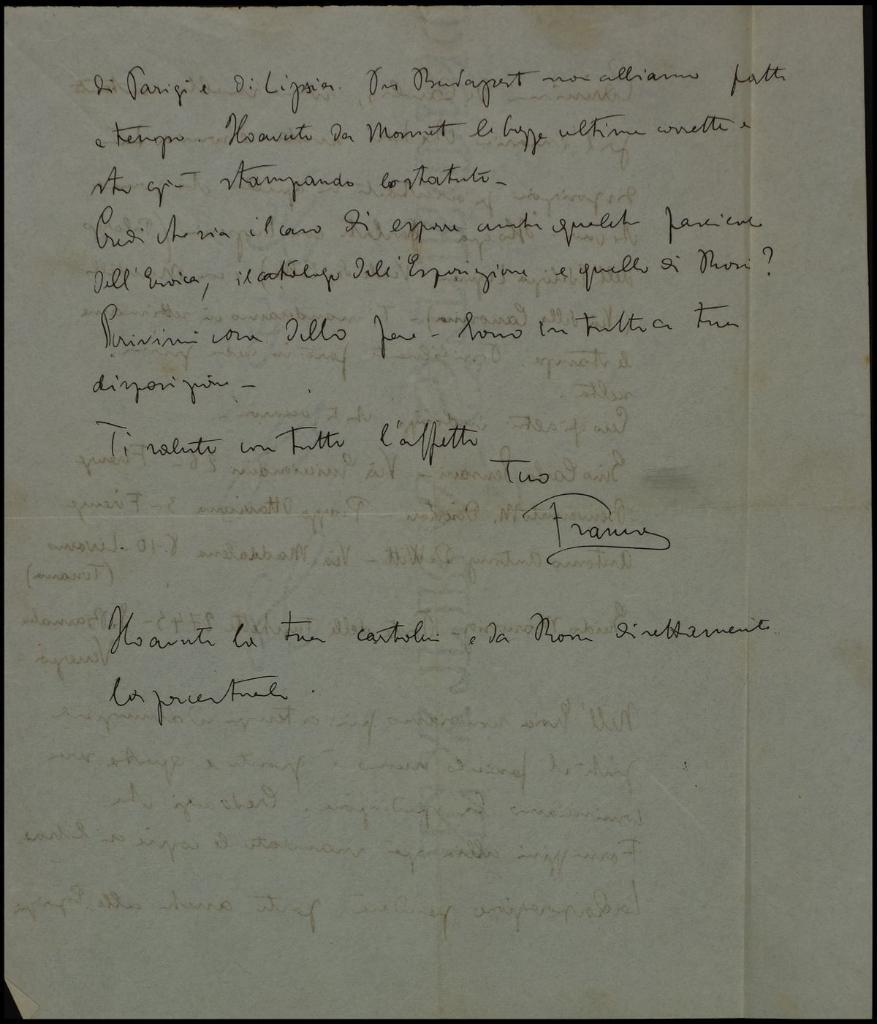 di Parigi e di Lipsia. Per Budapest non abbiamo fatto
a tempo. Ho avuto da Monnet le bozze ultime corrette e
sto già stampando lo statuto –
Credi che sia il caso di esporre anche qualche fascicolo
dell'Eroica, il catalogo dell'Esposizione e quello di Roma?
Scrivimi cosa debbo fare – Sono in tutto a tua
disposizione –
Ti saluto con tutto l'affetto
tuo
Franco
Ho avuto la tua cartolina e da Roma direttamente
la percentuale.